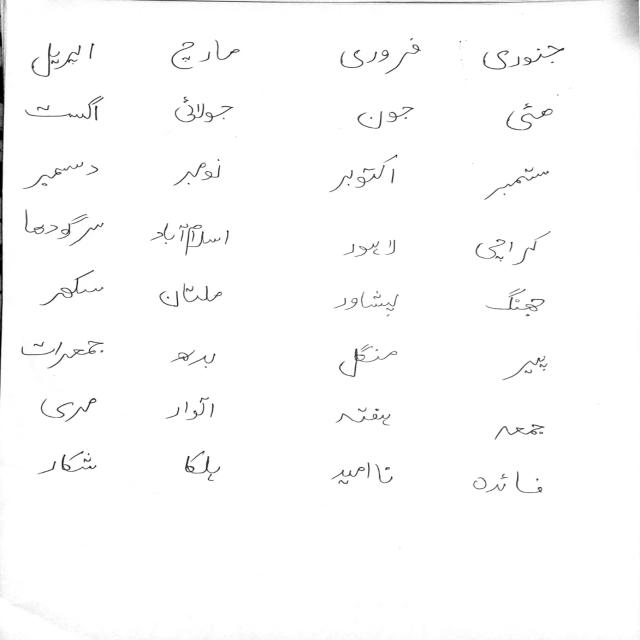 جنوری فروری مارچ اپریل
مئی جون جولائی اگست
ستمبر اکتوبر نومبر دسمبر
کراچی لاہور اسلام آباد سرگودھا
جھنگ پشاور ملتان سکھر
پیر منگل بدھ جمعرات
جمعہ ہفتہ اتوار مری
فائدہ ناامید ہلکا شکار